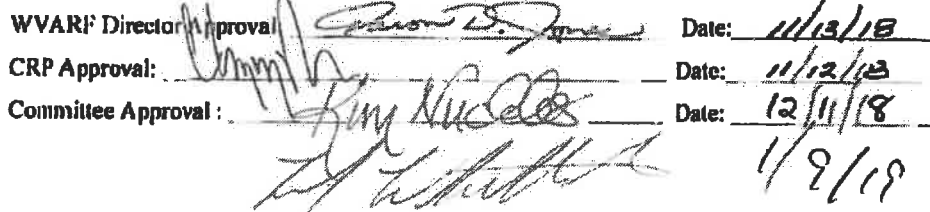 WVARF Director Approval Aaron D. Jones Date: 11/13/18
CRP Approval: Date: 11/12/18
Committee Approval : Kim Nuckles Date: 12/11/18
1/9/19